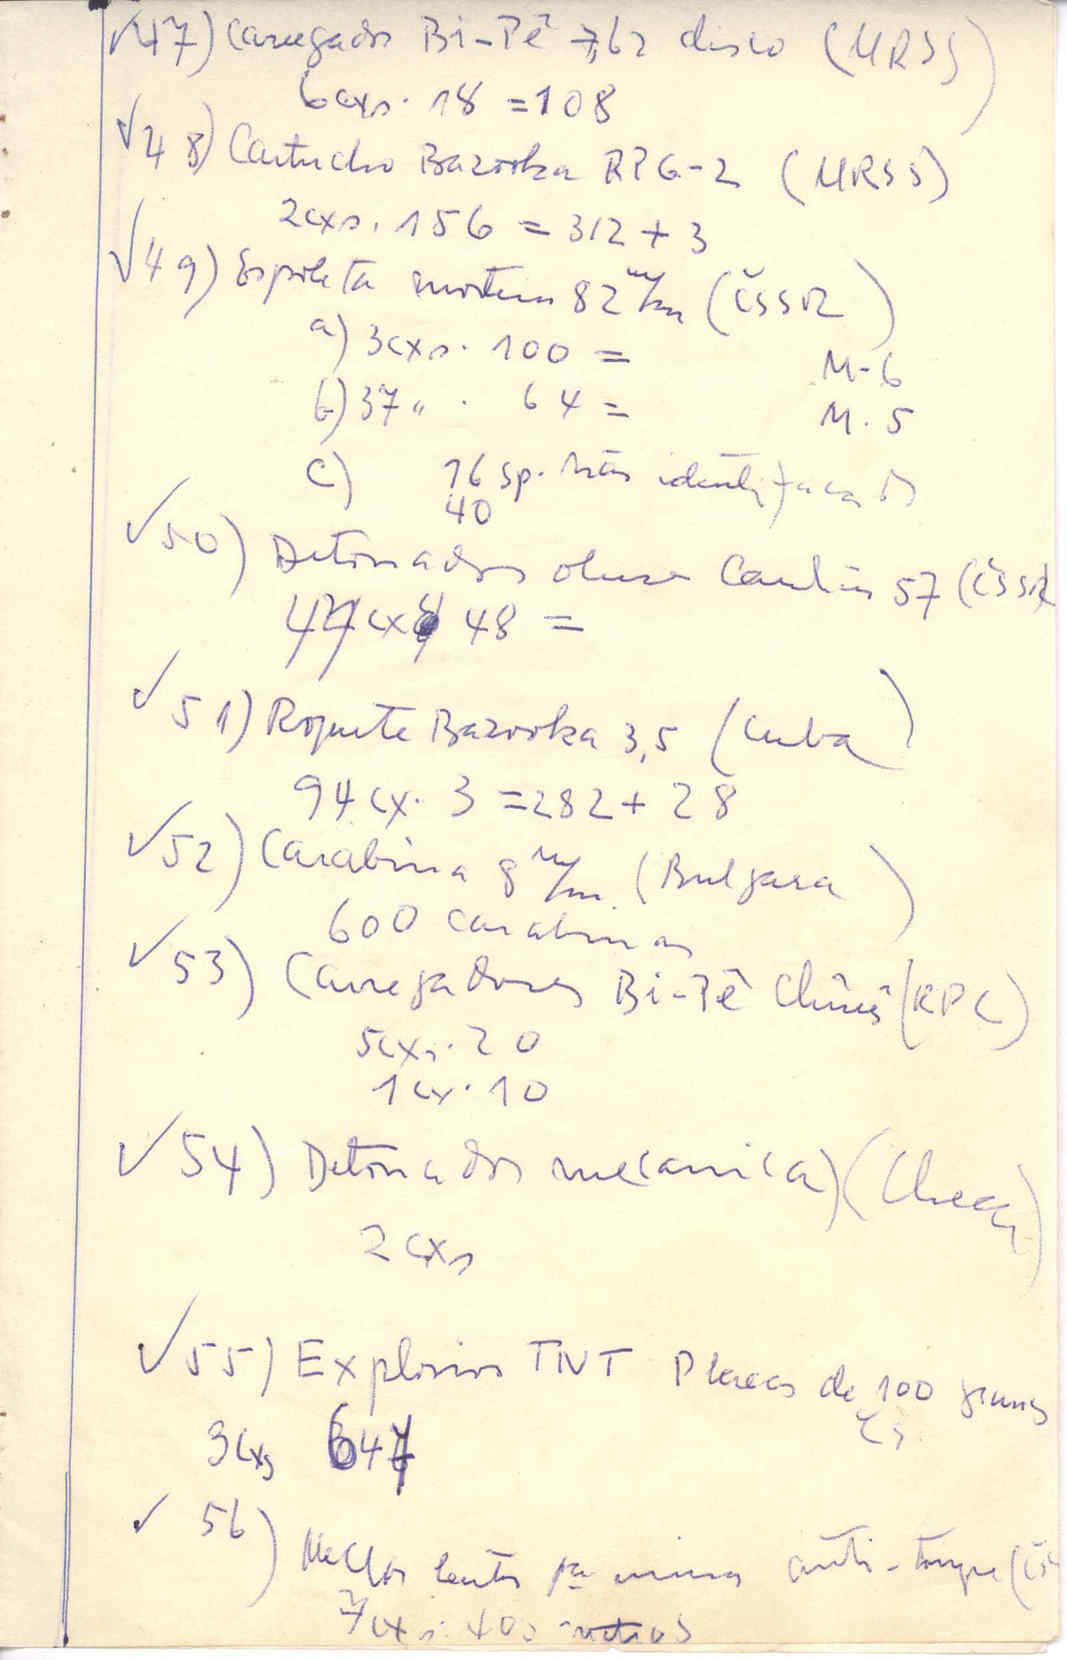 ✓47) Carregador Bi-Pê 7,62 disco (URSS)
6cxs. 18 = 108
✓48) Cartucho Bazooka RPG-2 (URSS)
2cxs. 156 = 312 + 3
✓49) Espoleta morteiro 82 m/m (ČSSR)
a) 3cxs. 100 = M-6
b) 37 " . 64 = M. 5
c) 16 sp. não identificados
40
✓50) Detonadores obuse Canhão 57 (ČSSR
cx 48 =
✓51) Roquete Bazooka 3,5 (Cuba)
94 cx. 3 = 282 + 28
✓52) Carabina 8 m/m (Bulgara)
600 carabinas
✓53) Carregadores Bi-Pê Chinês (RPC)
5cxs. 20
1cx. 10
✓54) Detonador mecanica) (Checa)
2 cxs
✓55) Explosivos TNT Placas de 100 gramas
3cxs 647
✓56) lento pa minas anti-tanque (Č
7cxs. 40 metros